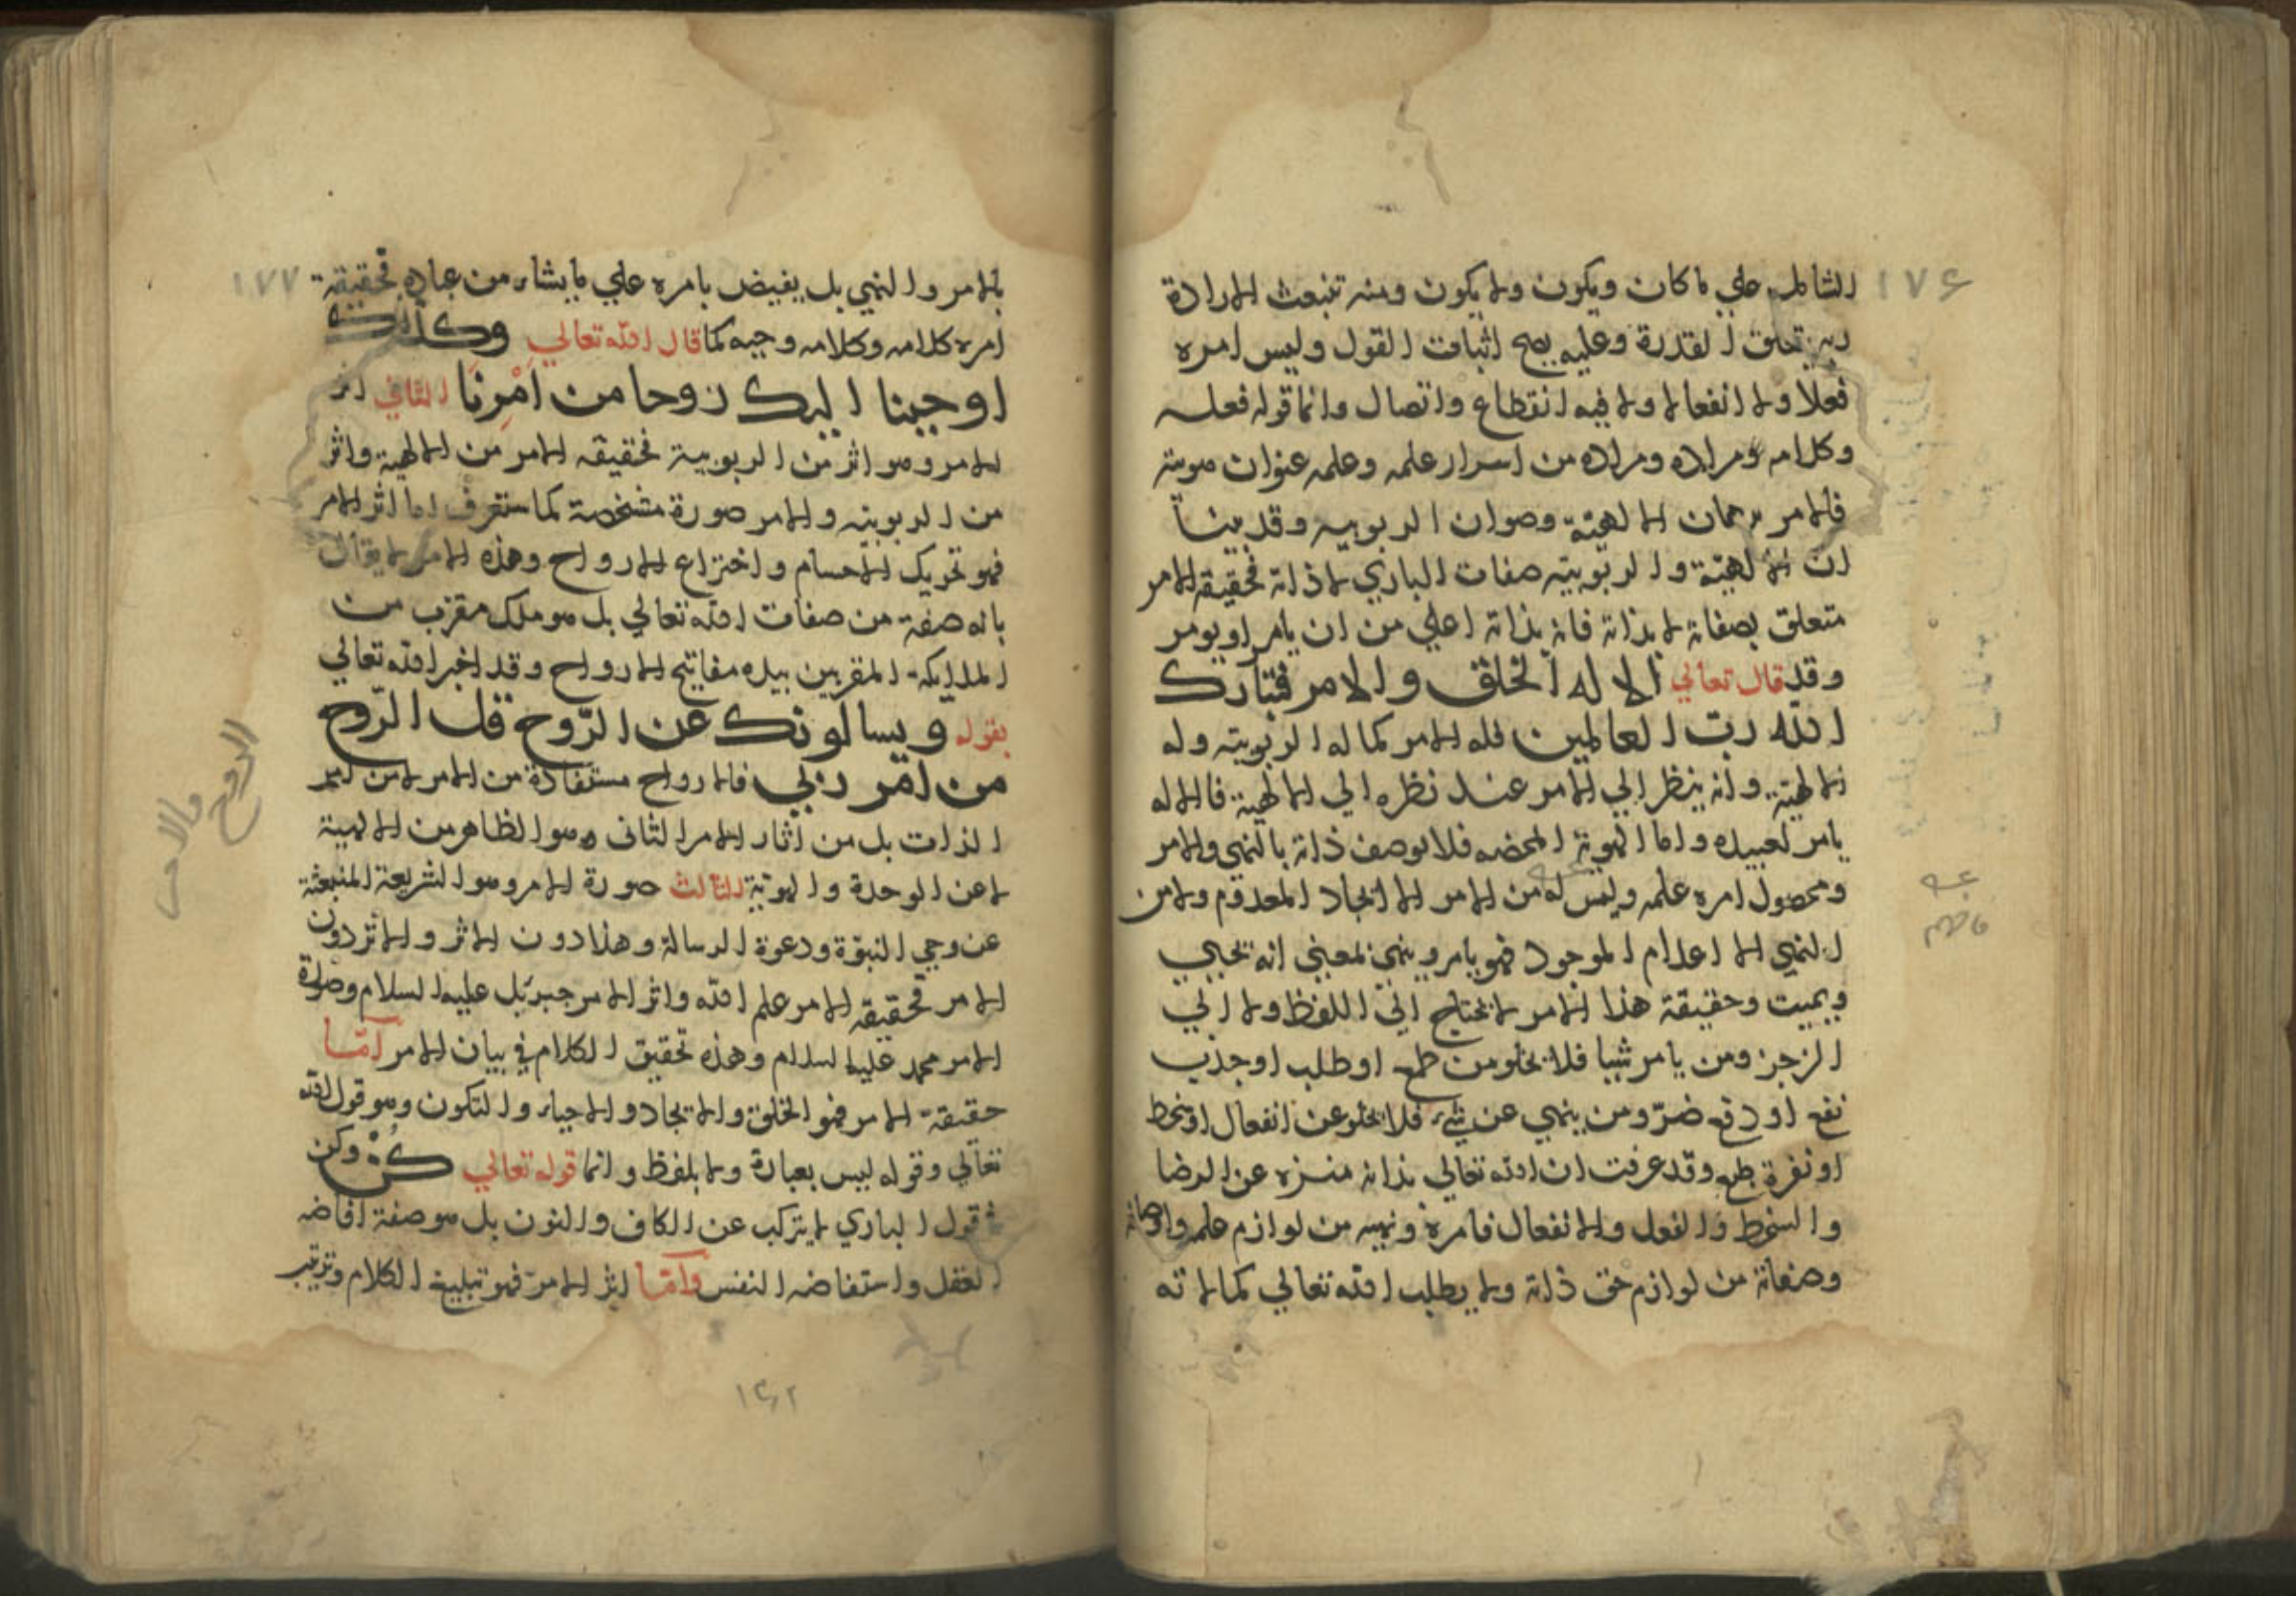 ١٧٦
الشامل علي ما كان ويكون ولا يكون ومنه تنبعث الارادة
وبه تعلق القدرة وعليه يصح اثبات القول وليس امره
فعلا ولا انفعالا ولا فيه انقطاع واتصال وانما قوله فعله
وكلامه ومراده ومراده من اسرار علمه وعلمه عنوان هويته
فالامر برهان الالهية وصوان الربوبيه وقد بينا
ان الالهية والربوبيته صفات الباري لا ذاته فحقيقة الامر
متعلق بصفاته لا بذاته فانه بذاته اعلي من ان يامر او يومر
وقد قال تعالي الا له الخلق والامر فتبارك
الله رب العالمين فله الامر كما له الربوبيته وله
الالهية وانه ينظر الي الامر عند نظره الي الالهية فالاله
يامر لعبيده واما الهوية المحضه فلا يوصف ذاته بالنهي والامر
ومحصول امره علمه وليس له من الامر الا ايجاد المعدوم ولا من
النهي الا اعدام الموجود فهو يامر وينهي بمعني انه يحيي
ويميت وحقيقة هذا الامر لا يحتاج الي اللفظ ولا الي
الزجر ومن يامر شيا فلا يخلو من طمع او طلب او جذب
نفع او دفع ضرّ ومن ينهي عن شيء فلا يخلو عن انفعال او سخط
او نفرة طبع وقد عرفت ان الله تعالي بذاته منزه عن الرضا
والسخط والفعل والانفعال فامره ونهيه من لوازم علمه واوصافه
وصفاته من لوازم حق ذاته ولا يطلب الله تعالي كمالاته
١٧٧
بالامر والنهي بل يفيض بامره علي ما يشاء من عباده فحقيقة
امره كلامه وكلامه وحيه كما قال الله تعالي وكذلك
اوحينا اليك روحا من امرنا الثاني اثر
الامر وهو اثر من الربوبية فحقيقه الامر من الالهية واثر
من الربوبيته والامر صورة مشخصة كما ستعرف اما اثر الامر
فهو تحريك الاجسام واختراع الارواح وهذه الامر لا يقال
بانه صفة من صفات الله تعالي بل هو ملك مقرب من
الملايكة المقربين بيده مفاتيح الارواح وقد اخبر الله تعالي
بقوله ويسالونك عن الرّوح قل الرّوح
من امر ربي فالارواح مستفادة من الامر لا من امر
الذات بل من اثار الامر الثاني وهو الظاهر من الالهية
لا عن الوحدة والهويّة الثالث صورة الامر وهو الشريعة المنبعثة
عن وحي النبوّة ودعوة الرسالة وهذا دون الاثر والاثر دون
الامر فحقيقة الامر علم الله واثر الامر جبريل عليه السلام وصورة
الامر محمد عليه السلام وهذه تحقيق الكلام في بيان الامر امّا
حقيقة الامر فهو الخلق والايجاد والاحياء والتكون وهو قول الله
تعالي وقوله ليس بعبارة ولا بلفظ وانما قوله تعالي كُنْ ولكن
قول الباري لا يتركب عن الكاف والنون بل هو صفة افاضه
العقل واستفاضه النفس وامّا اثر الامر فهو تبليغ الكلام وترتيب
الروح
والامر